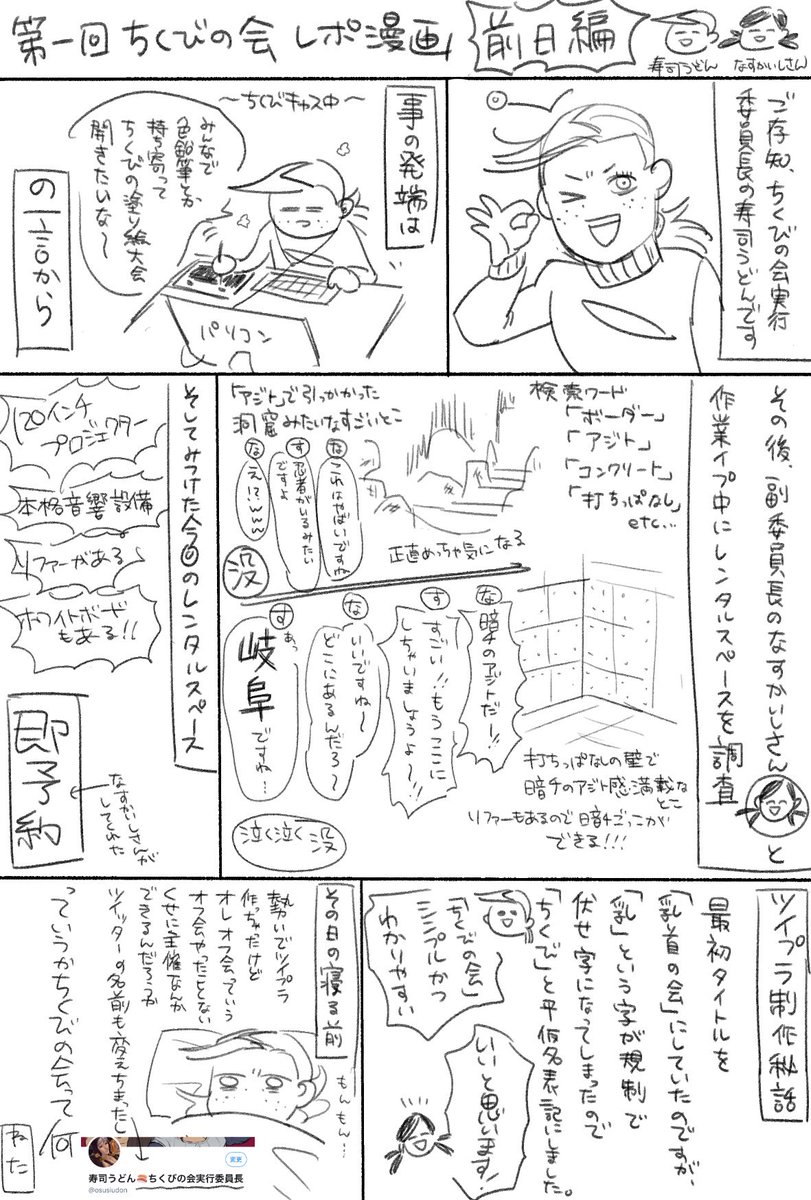 第一回 ちくびの会 レポ漫画 前日編
寿司うどん なすかいしさん
ご存知、ちくびの会実行
委員長の寿司うどんです
事の発端は
〜ちくびキャス中〜
みんなで
色鉛筆とか
持ち寄って
ちくびの塗り絵大会
開きたいな〜
パソコン
の一言から
その後、副委員長のなすかいしさんと
作業イプ中にレンタルスペースを調査
検索ワード
「ボーダー」
「アジト」
「コンクリート」
「打ちっぱなし」
etc…
「アジト」で引っかかった
洞窟みたいなすごいとこ
正直めっちゃ気になる
な これはやばいですね
す 忍者がいるみたい
ですよ
な え!?www
没
打ちっぱなしの壁で
暗チのアジト感満載な
とこ
リファーもあるので暗チごっこが
できる!!!
な 暗チのアジトだー!!
す すごい!!もうここに
しちゃいましょうよ〜!!
な いいですね〜
どこにあるんだろ〜
す あっ
岐阜ですね…
泣く泣く没
そしてみつけた今回のレンタルスペース
120インチ
プロジェクター
本格音響設備
リファーがある
ホワイトボード
もある!!
即予約
なすかいしさんが
してくれた
ツイプラ制作秘話
最初タイトルを
「乳首の会」にしていたのですが、
「乳」という字が規制で
伏せ字になってしまったので
「ちくび」と平仮名表記にしました。
「ちくびの会」
シンプルかつ
わかりやすい
いいと思います!
その日の寝る前
もんもん…
勢いでツイプラ
作っちゃったけど
オレオフ会っていう
オフ会やったことない
くせに主催なんか
できるんだろうか
ツイッターの名前も変えちまったし
っていうかちくびの会って何
ねた
変更
寿司うどん🍣ちくびの会実行委員長
@osusiudon